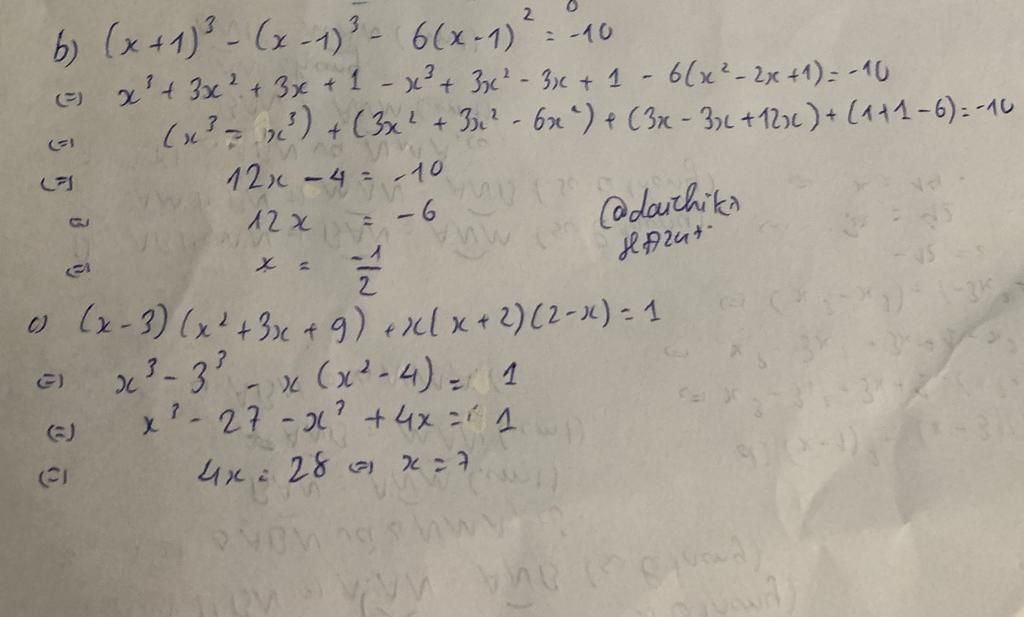 b) (x+1)³ - (x-1)³ - 6(x-1)² = -10
(=) x³ + 3x² + 3x + 1 - x³ + 3x² - 3x + 1 - 6(x² - 2x + 1) = -10
(=) (x³ - x³) + (3x² + 3x² - 6x²) + (3x - 3x + 12x) + (1+1-6) = -10
(=) 12x - 4 = -10
(=) 12x = -6
(=) x = -1/2
c) (x-3)(x² + 3x + 9) + x(x+2)(2-x) = 1
(=) x³ - 3³ - x(x² - 4) = 1
(=) x³ - 27 - x³ + 4x = 1
(=) 4x = 28 (=) x = 7